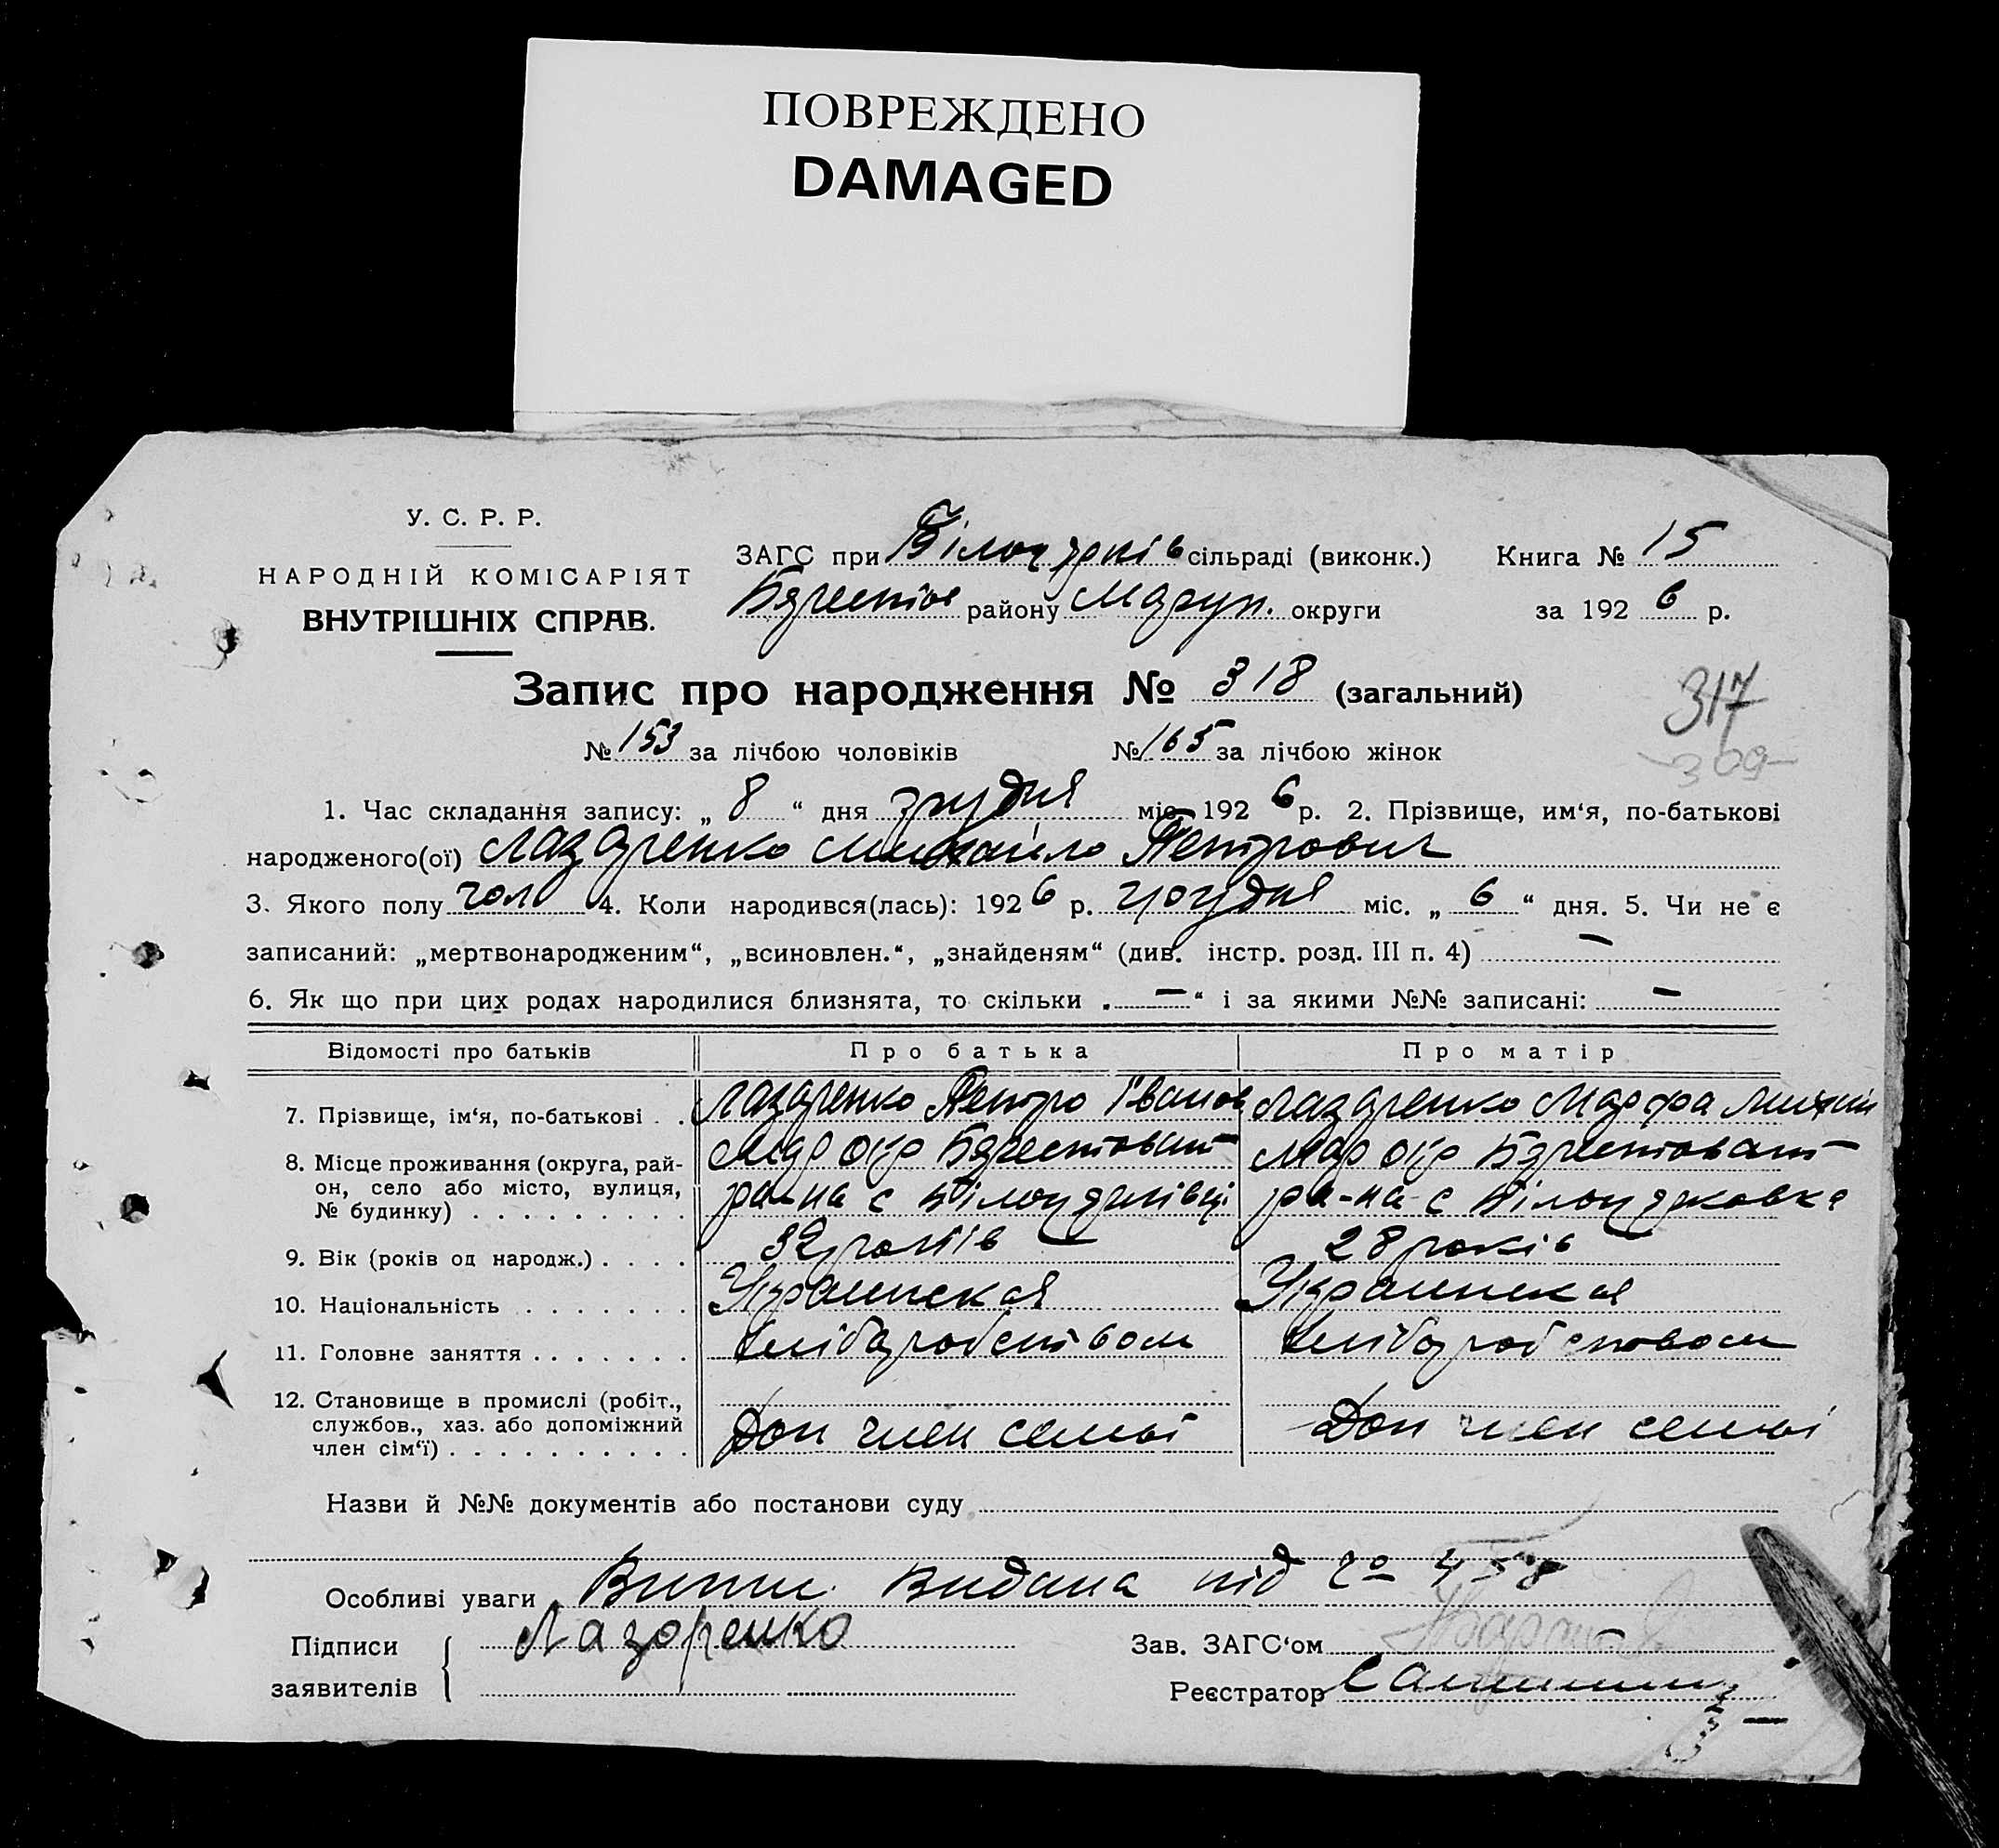 ПОВРЕЖДЕНО
DAMAGED
У. С. Р. Р.
НАРОДНІЙ КОМІСАРІЯТ
ВНУТРІШНІХ СПРАВ.
ЗАГС при сільраді (виконк.) Книга № 15
району Маруп. округи за 192 6 р.
Запис про народження № 318 (загальний)
317
№ 153 за лічбою чоловіків № 165 за лічбою жінок
309
1. Час складання запису: „ 8 “ дня грудня міс. 192 6 р. 2. Прізвище, им‘я, по-батькові
народженого(ої) Лазаренко Михайло Петрович
3. Якого полу чол 4. Коли народився(лась): 192 6 р. грудня міс. „ 6 “ дня. 5. Чи не є
записаний: „мертвонародженим“, „всиновлен.“, „знайденям“ (див. інстр. розд. III п. 4) —
6. Як що при цих родах народилися близнята, то скільки „ — “ і за якими №№ записані: —
Відомості про батьків Про батька Про матір
7. Прізвище, ім‘я, по-батькові . . Лазаренко Петро Іванов Лазаренко Марфа
8. Місце проживання (округа, рай- Мар окр Мар окр
он, село або місто, вулиця, ра-на с ра-на с
№ будинку) . . . . . . . . .
9. Вік (років од народж.) . . . . 32 років 28 років
10. Національність . . . . . . . Украинская Украинская
11. Головне заняття . . . . . . . хліборобством хліборобством
12. Становище в промислі (робіт.,
службов., хаз. або допоміжний Доп член семьі Доп член семьі
член сім‘ї) . . . . . . . . . .
Назви й №№ документів або постанови суду
Особливі уваги Випис видана під № 458
Підписи Лазоренко Зав. ЗАГС‘ом
заявителів Реєстратор